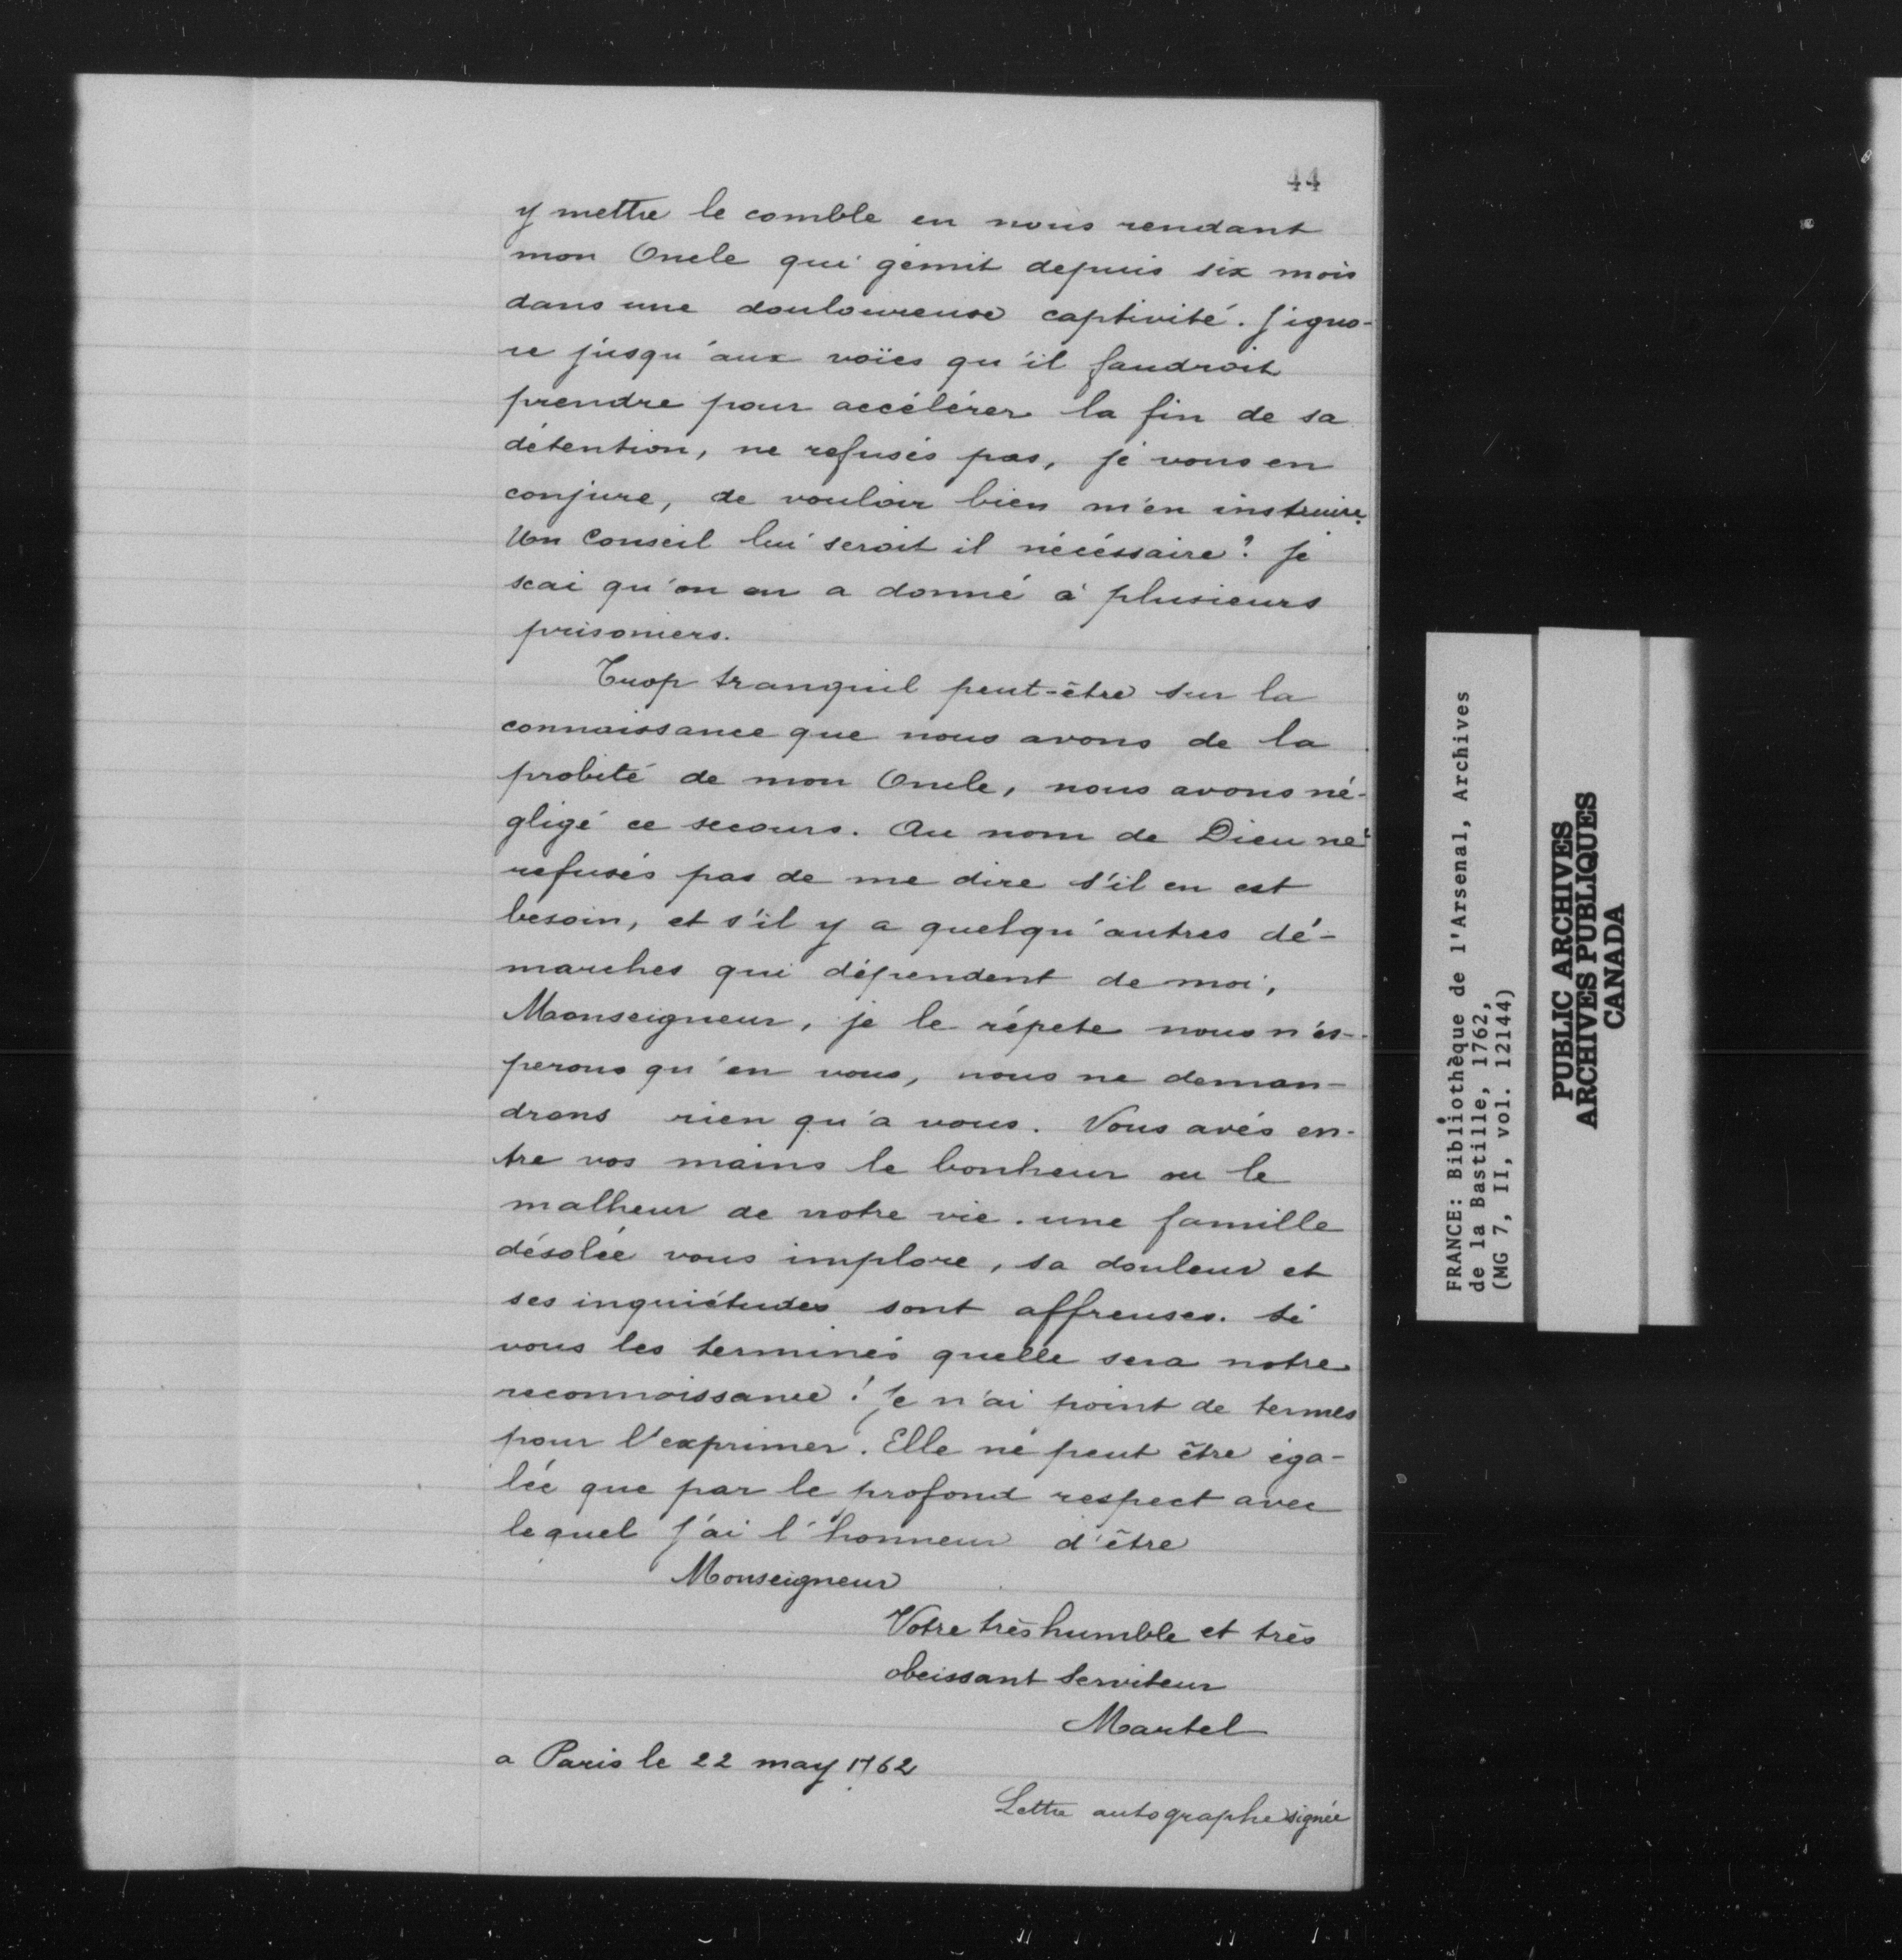 44
y mettre le comble en nous rendant
mon Oncle qui gémit depuis six mois
dans une douloureuse captivité. J'igno-
re jusqu'aux voïes qu'il faudroit
prendre pour accélérer la fin de sa
détention, ne refusés pas, je vous en
conjure, de vouloir bien m'en instruire.
Un Conseil lui seroit il nécéssaire? Je
scai qu'on en a donné à plusieurs
prisoniers.
Trop tranquil peut-être sur la
connaissance que nous avons de la
probité de mon Oncle, nous avons né-
gligé ce secours. Au nom de Dieu ne
refusés pas de me dire s'il en est
besoin, et s'il y a quelqu'autres dé-
marches qui dépendent de moi,
Monseigneur, je le répete nous n'es-
perons qu'en vous, nous ne deman-
drons rien qu'à vous. Vous avés en-
tre vos mains le bonheur ou le
malheur de notre vie. une famille
désolée vous implore, sa douleur et
ses inquiétudes sont affreuses. si
vous les terminés quelle sera notre
reconnoissance! Je n'ai point de termes
pour l'exprimer. Elle ne peut être éga-
lée que par le profond respect avec
lequel j'ai l'honneur d'être
Monseigneur
Votre très humble et très
obeissant Serviteur
Martel
a Paris le 22 may 1762
Lettre autographe signée
FRANCE: Bibliothèque de l'Arsenal, Archives
de la Bastille, 1762,
(MG 7, II, vol. 12144)
PUBLIC ARCHIVES
ARCHIVES PUBLIQUES
CANADA